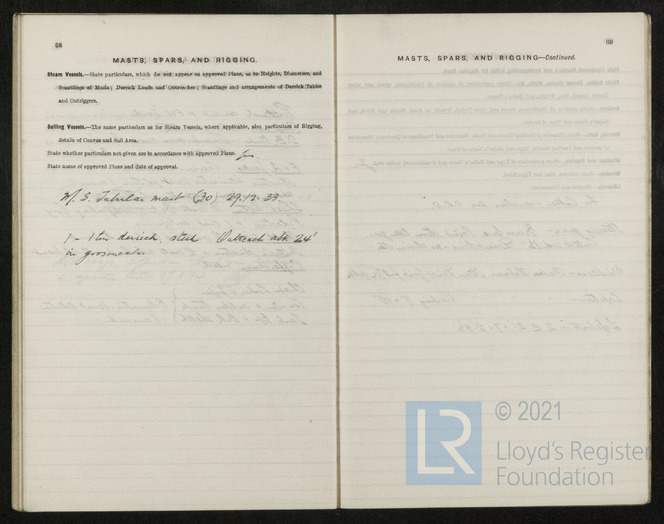 68
MASTS, SPARS, AND RIGGING.
Steam Vessels.—State particulars, which do not appear on approved Plans, as to Heights, Diameters, and
Scantlings of Masts; Derrick Loads and Outreaches; Scantlings and arrangements of Derrick Tables
and Outriggers.
Sailing Vessels.—The same particulars as for Steam Vessels, where applicable, also particulars of Rigging,
details of Canvas and Sail Area.
State whether particulars not given are in accordance with approved Plans. Yes
State name of approved Plans and date of approval.
M.S. Tubular mast (30) 29.12.33
1 - 1 ton derrick, steel Outreach abt. 24'
in gooseneck.
69
MASTS, SPARS, AND RIGGING—Continued.
LR
© 2021
Lloyd's Register
Foundation